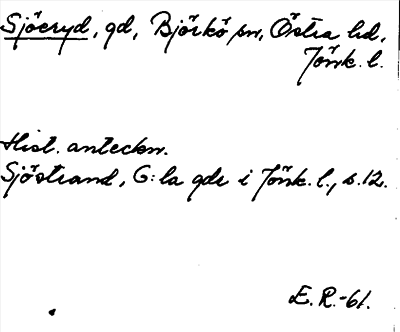 Sjöeryd, gd, Björkö sn, Östra hd,
Jönk. l.
Hist. anteckn.
Sjöstrand, G:la gdr i Jönk. l., s. 12.
E. R.-61.